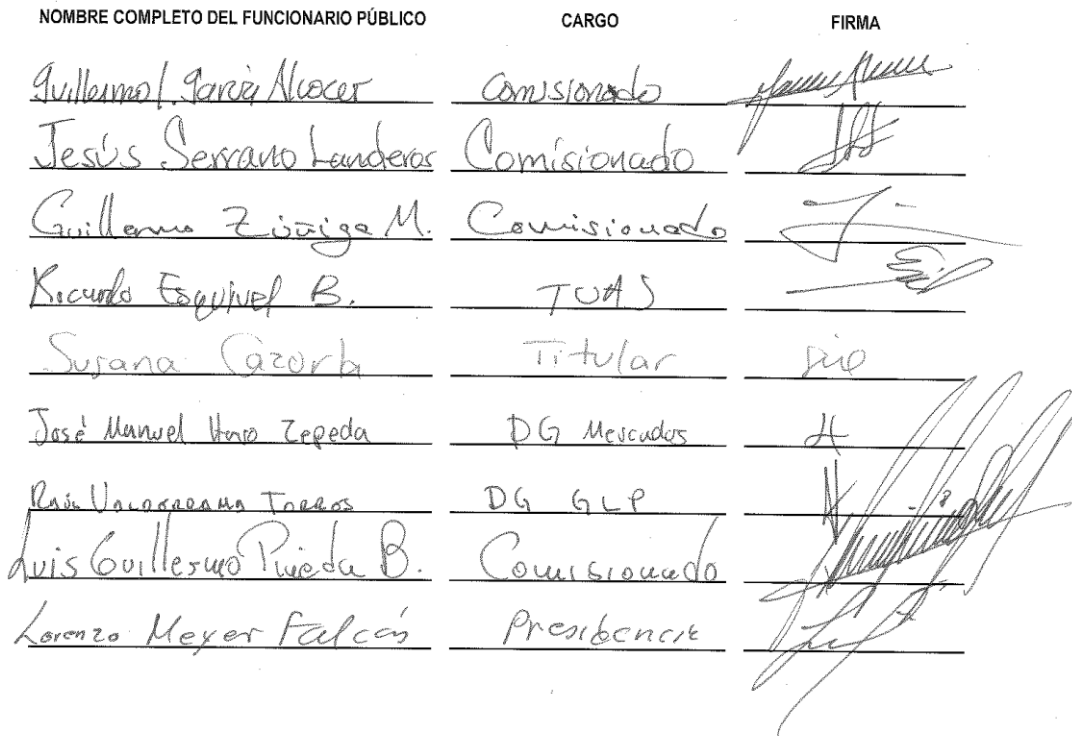 NOMBRE COMPLETO DEL FUNCIONARIO PÚBLICO CARGO FIRMA
Guillermo I. García Alcocer Comisionado
Jesús Serrano Landeros Comisionado
Guillermo Zúñiga M. Comisionado
Ricardo Esquivel B. TUAS
Susana Cazorla Titular
José Manuel Haro Zepeda DG Mercados
Raúl Valderrama Torres DG GLP
Luis Guillermo Pineda B. Comisionado
Lorenzo Meyer Falcón Presidencia